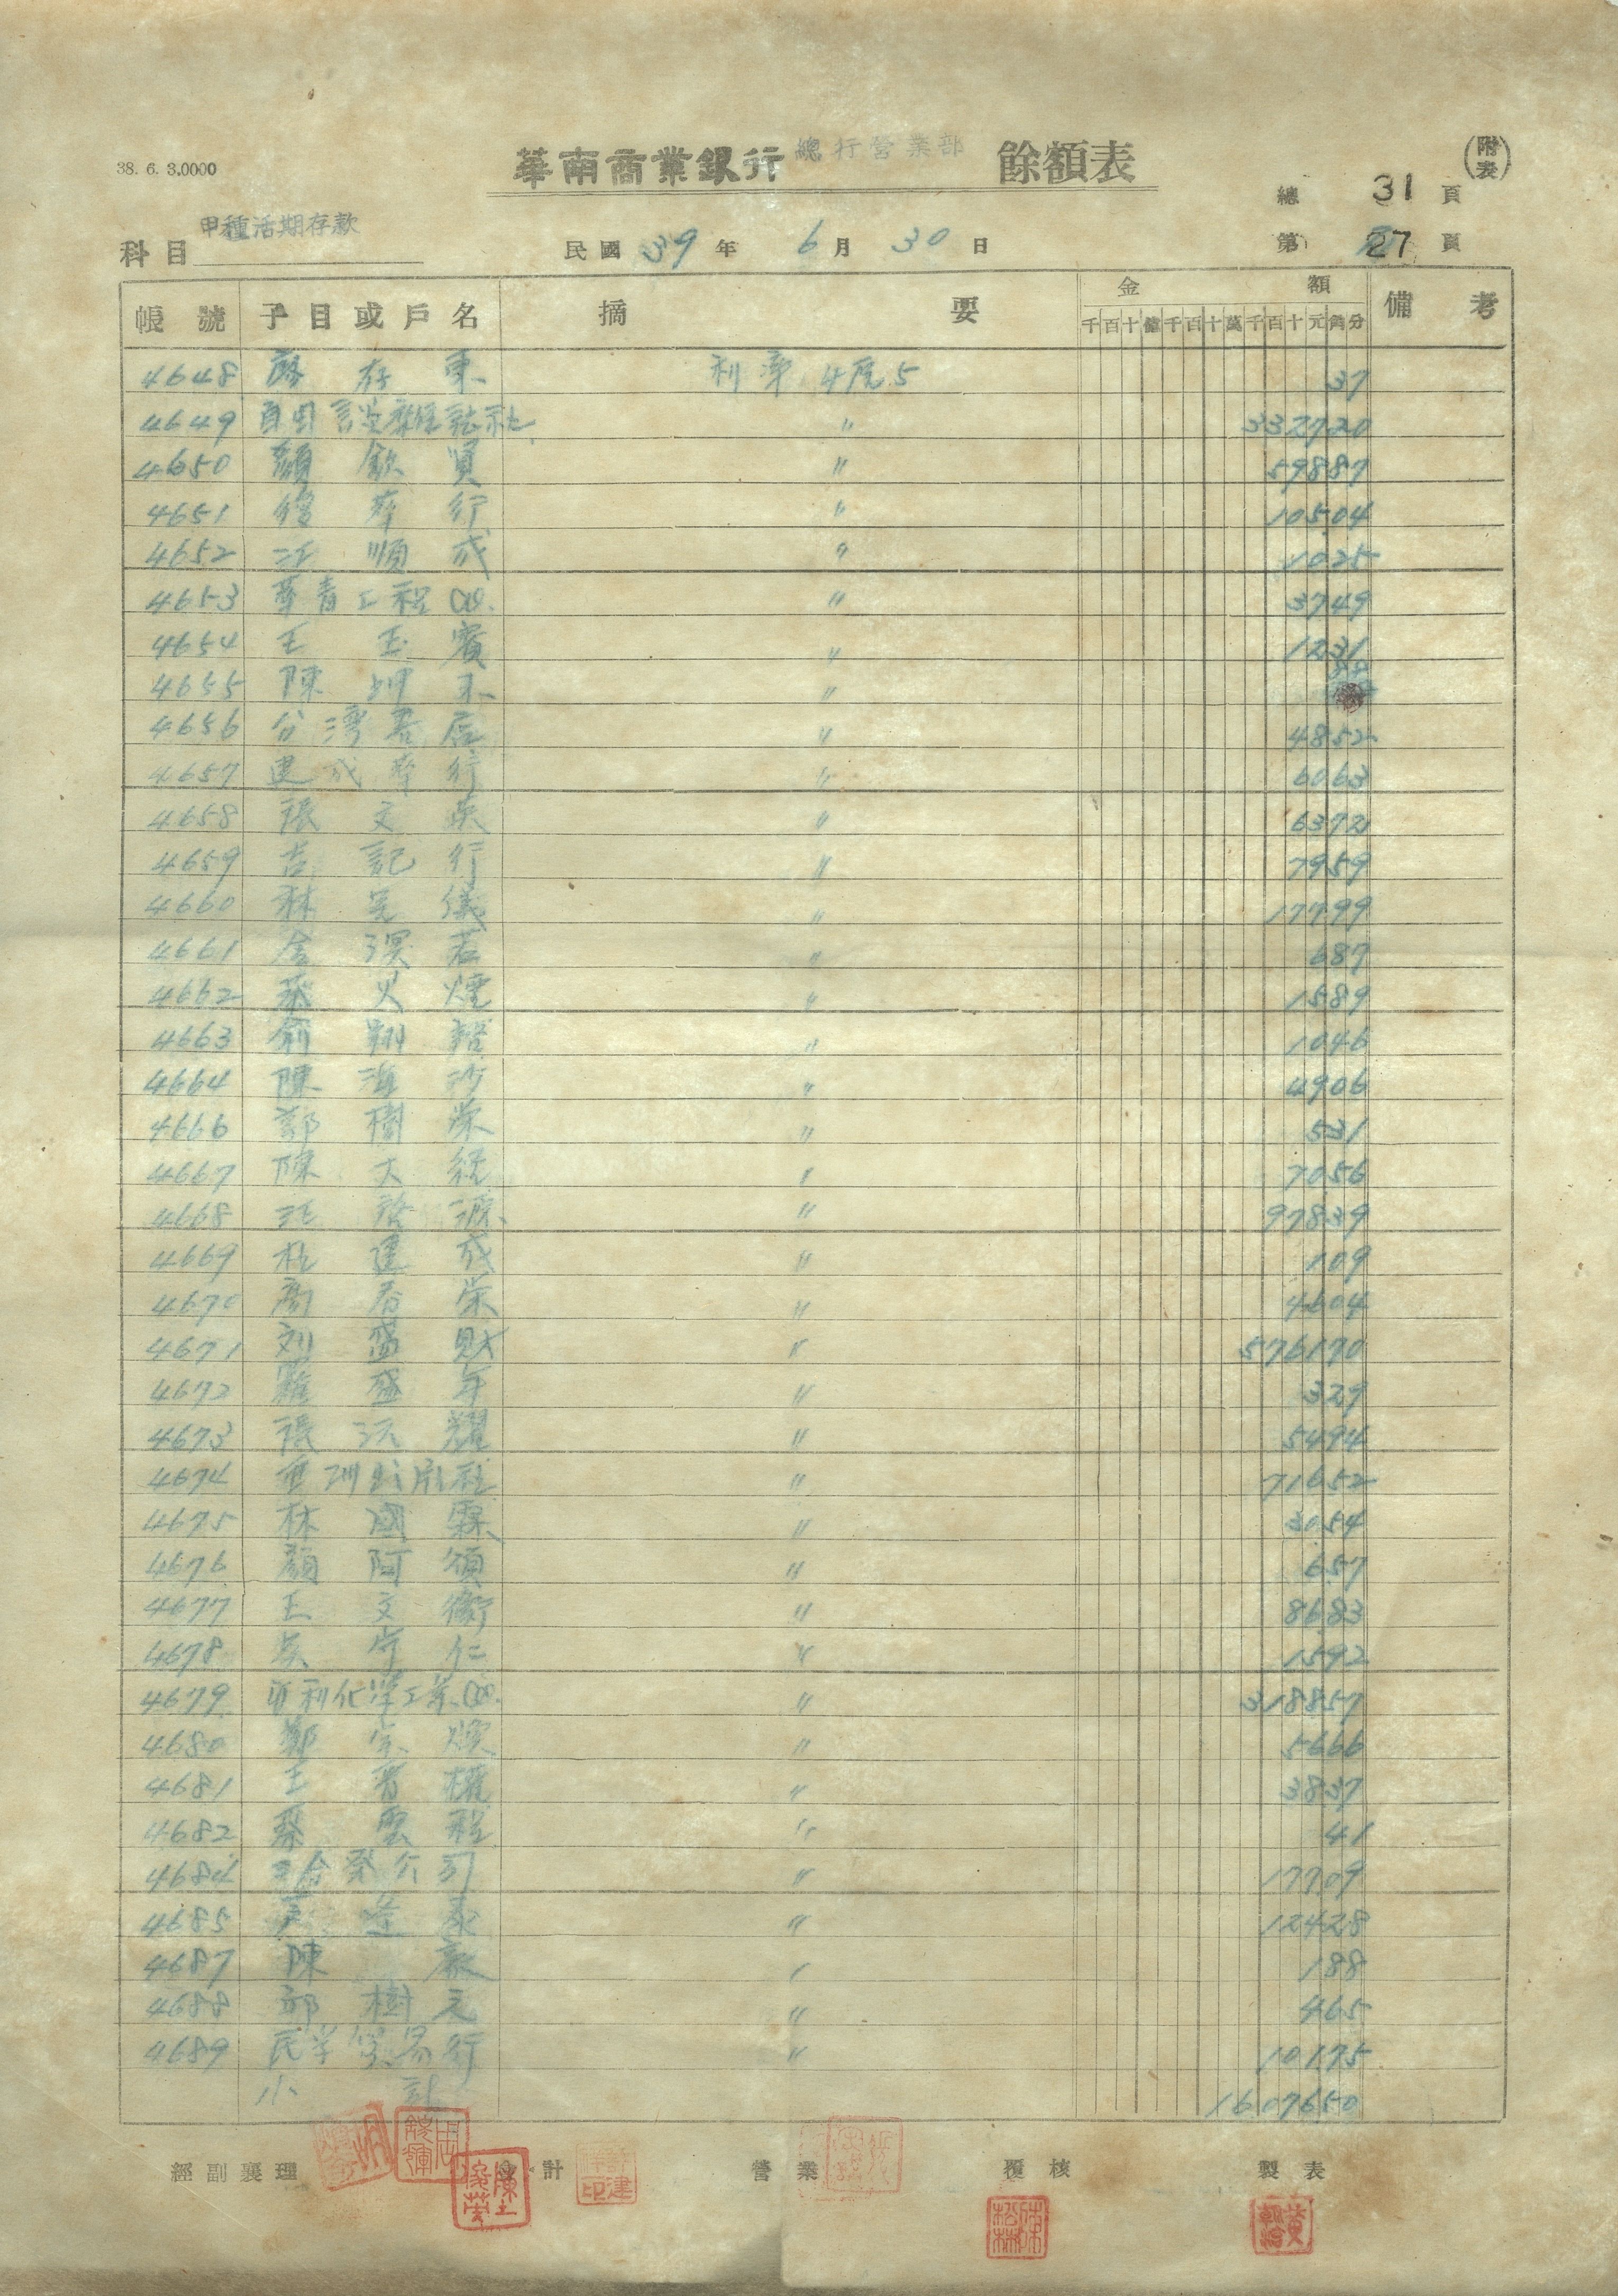 38. 6. 3.0000
華南商業銀行 總行營業部 餘額表
(附表)
總 31 頁
科目 甲種活期存款
民國 39 年 6 月 30 日
第 27 頁
帳號 子目或戶名 摘要 金額 備考
千百十億千百十萬千百十元角分
4648 存東 利率 4厘5 37
4649 自由談雜誌社 〃 332720
4650 顏欽賢 〃 59887
4651 行 〃 10504
4652 汪順成 〃 1025
4653 華青工程Co. 〃 3749
4654 王玉賓 〃 1231
4655 陳 〃 88
4656 台灣書店 〃 4852
4657 建成行 〃 6063
4658 張文英 〃 6372
4659 吉記行 〃 7959
4660 林儀 〃 17799
4661 金溟若 〃 687
4662 火煙 〃 1589
4663 俞 〃 1046
4664 陳海沙 〃 4906
4666 鄭樹榮 〃 531
4667 陳大経 〃 7056
4668 汪啓源 〃 97839
4669 杜建成 〃 109
4670 高春榮 〃 4604
4671 刘盛財 〃 576170
4672 羅盛年 〃 329
4673 張耀 〃 5494
4674 〃 71652
4675 林國霖 〃 3054
4676 顏阿頌 〃 657
4677 王文衛 〃 8683
4678 吳仁 〃 1592
4679 利化學工業Co. 〃 318857
4680 鄭宗煥 〃 5666
4681 王晋權 〃 3837
4682 蔡雲程 〃 41
4684 三合發公司 〃 17709
4685 〃 12428
4687 陳 〃 188
4688 邱樹元 〃 465
4689 民孚貿易行 〃 10175
小計 1607650
經副襄理 會計 營業 覆核 製表